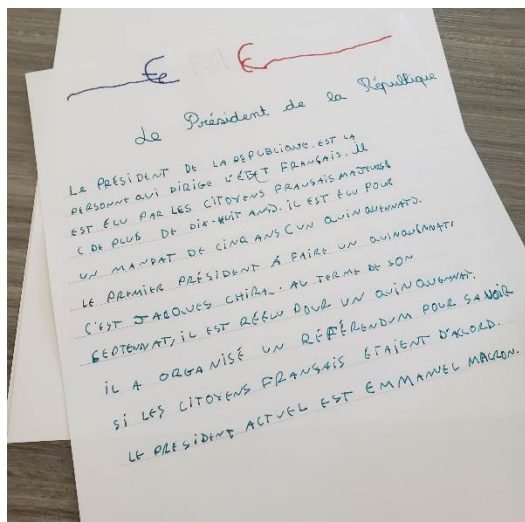 Le Président de la République
LE PRÉSIDENT DE LA REPUBLIQUE EST LA
PERSONNE QUI DIRIGE L'ÉTAT FRANÇAIS. IL
EST ÉLU PAR LES CITOYENS FRANSAIS MAJEURS
(DE PLUS DE DIX-HUIT ANS). IL EST ÉLU POUR
UN MANDAT DE CINQ ANS (UN QUINQUENNAT).
LE PREMIER PRÉSIDENT À FAIRE UN QUINQUENNAT,
C'EST JACQUES CHIRAC. AU TERME DE SON
SEPTENNAT, IL EST RÉÉLU POUR UN QUINQUENNAT.
IL A ORGANISÉ UN RÉFÉRENDUM POUR SAVOIR
SI LES CITOYENS FRANSAIS ETAIENT D'ACCORD.
LE PRESIDENT ACTUEL EST EMMANUEL MACRON.